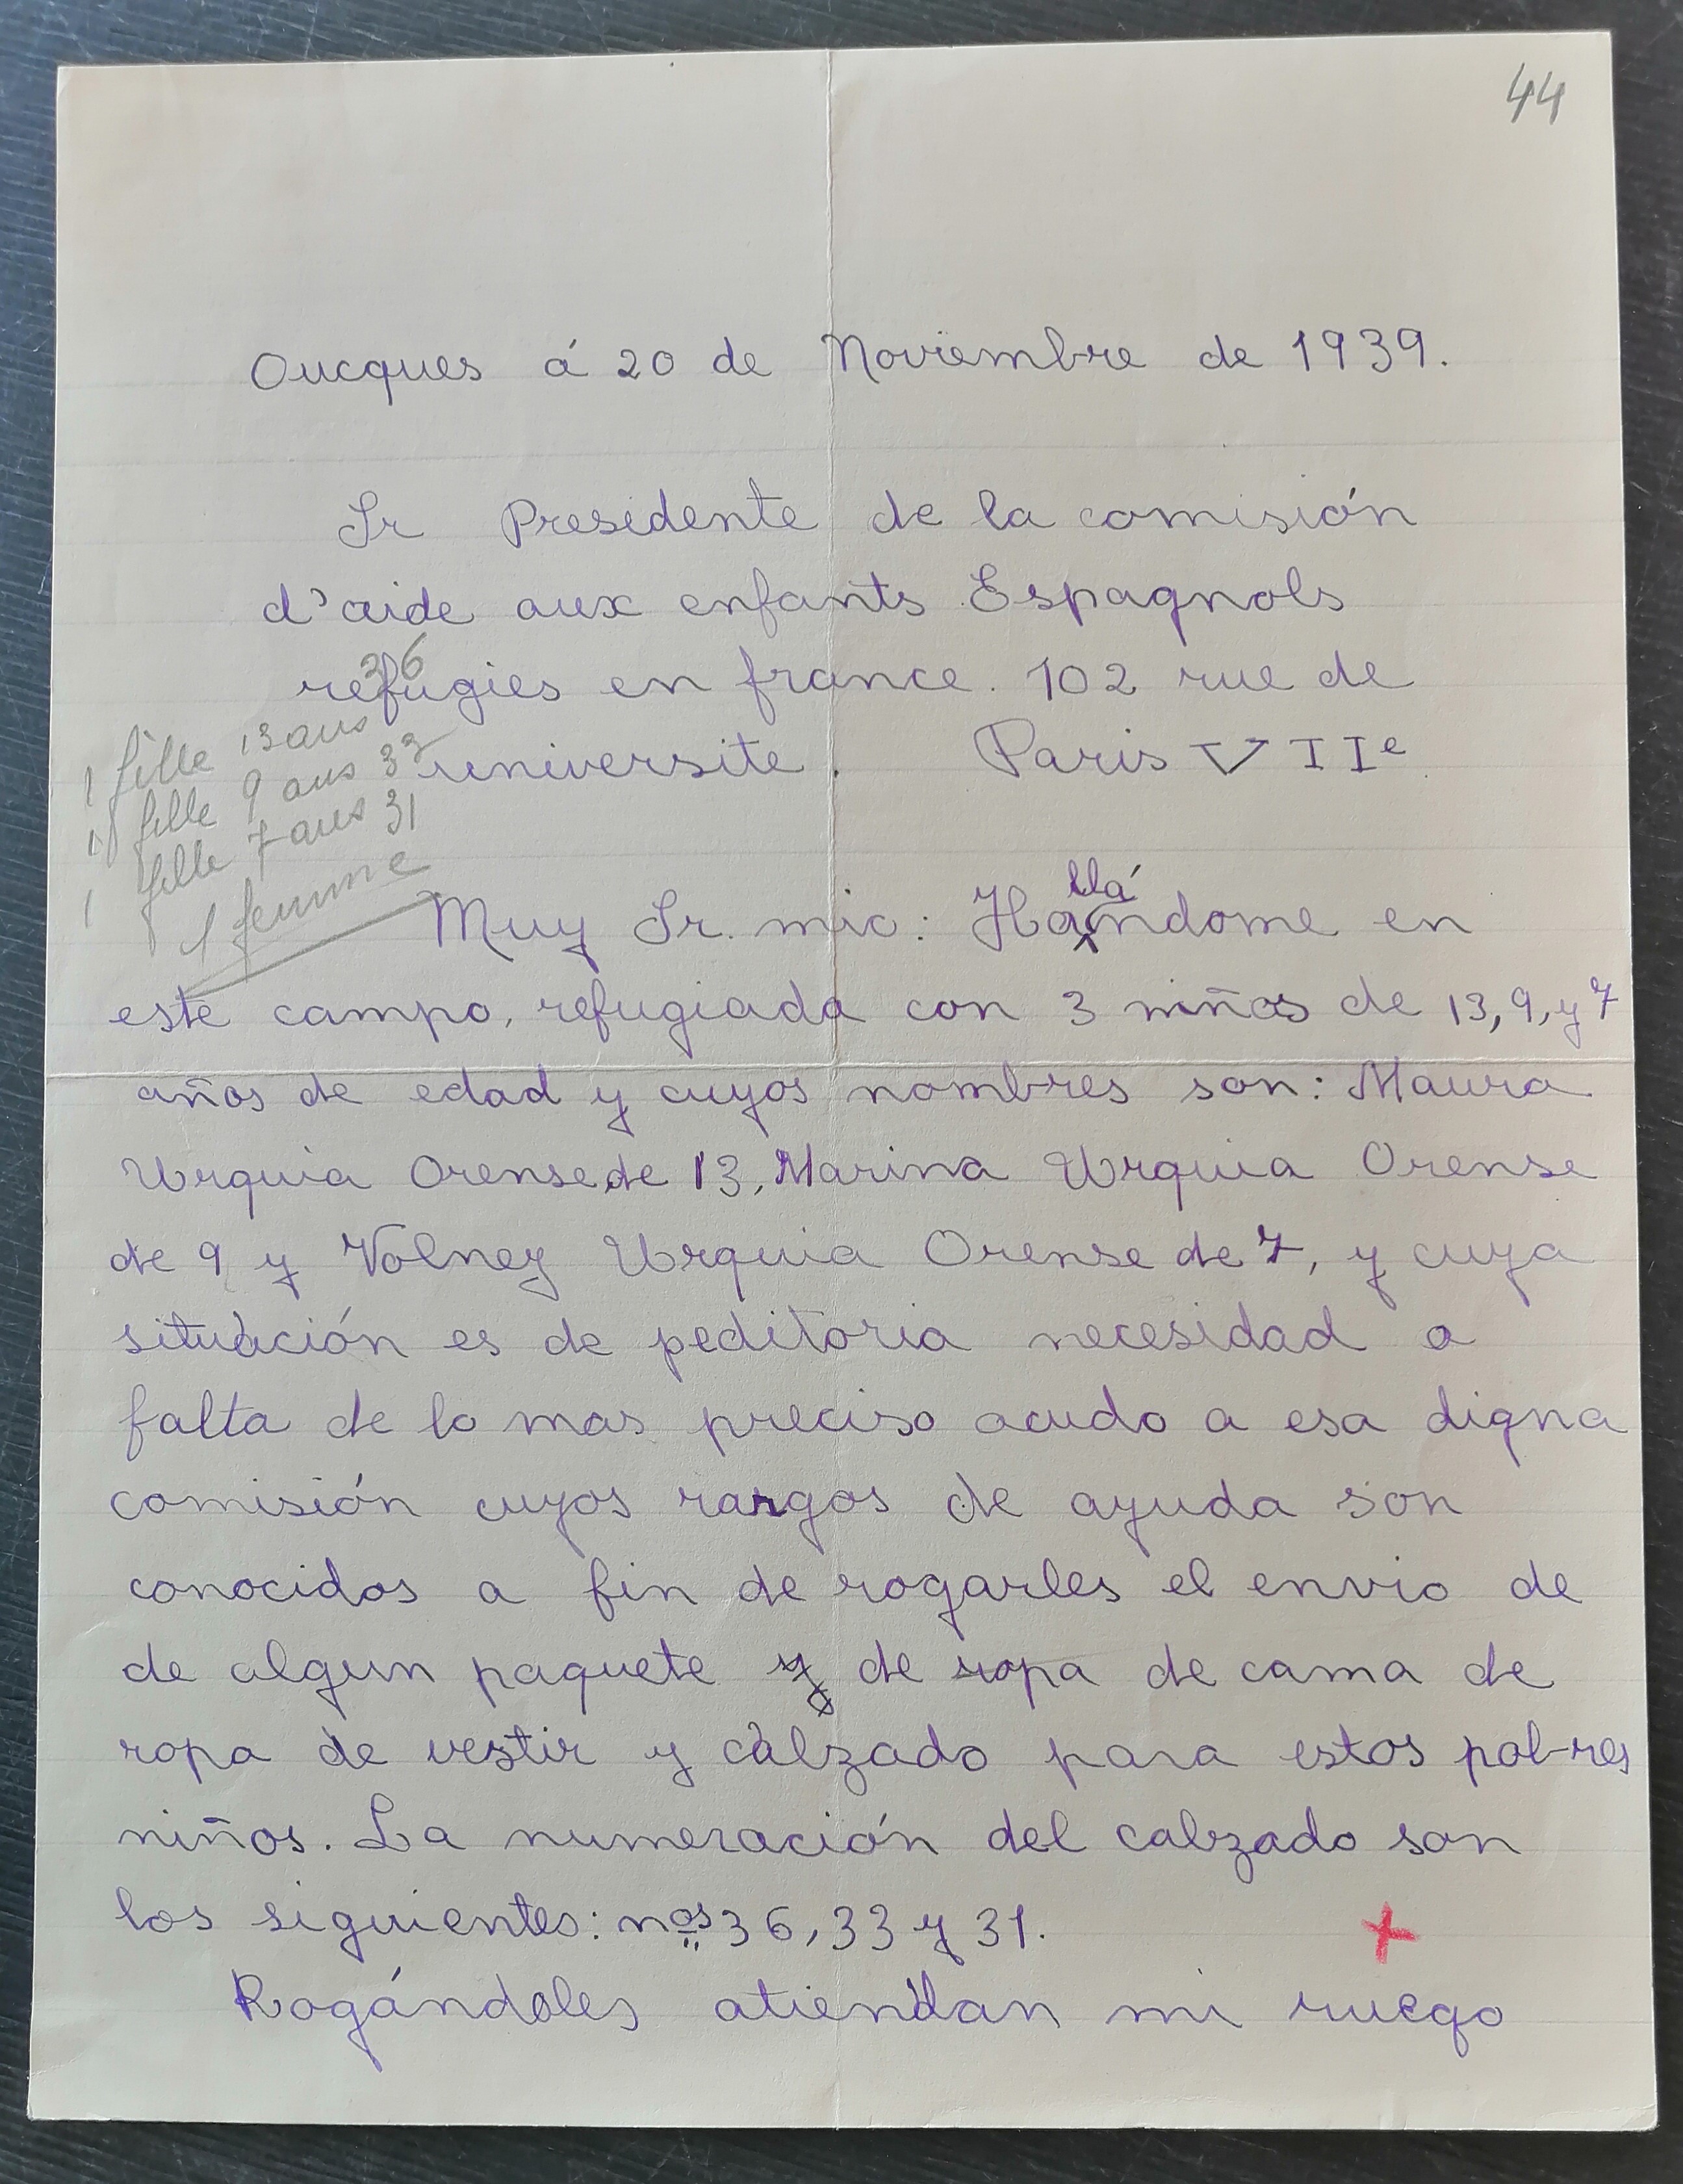 44
Oucques á 20 de Noviembre de 1939.
Sr Presidente de la comisión
d'aide aux enfants Espagnols
refugies en france. 102 rue de
universite. Paris VIIe
36
1 fille 13 ans
1 fille 9 ans 33
1 fille 7 ans 31
1 femme
Muy Sr. mio: Hallándome en
este campo, refugiada con 3 niños de 13, 9, y 7
años de edad y cuyos nombres son: Maura
Urquia Orense de 13, Marina Urquia Orense
de 9 y Volney Urquia Orense de 7, y cuya
situación es de peditoria necesidad a
falta de lo mas preciso acudo a esa digna
comisión cuyos rargos de ayuda son
conocidos a fin de rogarles el envio de
de algun paquete y de ropa de cama de
ropa de vestir y calzado para estos pobres
niños. La numeración del calzado son
los siguientes: nos 36, 33 y 31.
Rogándoles atiendan mi ruego